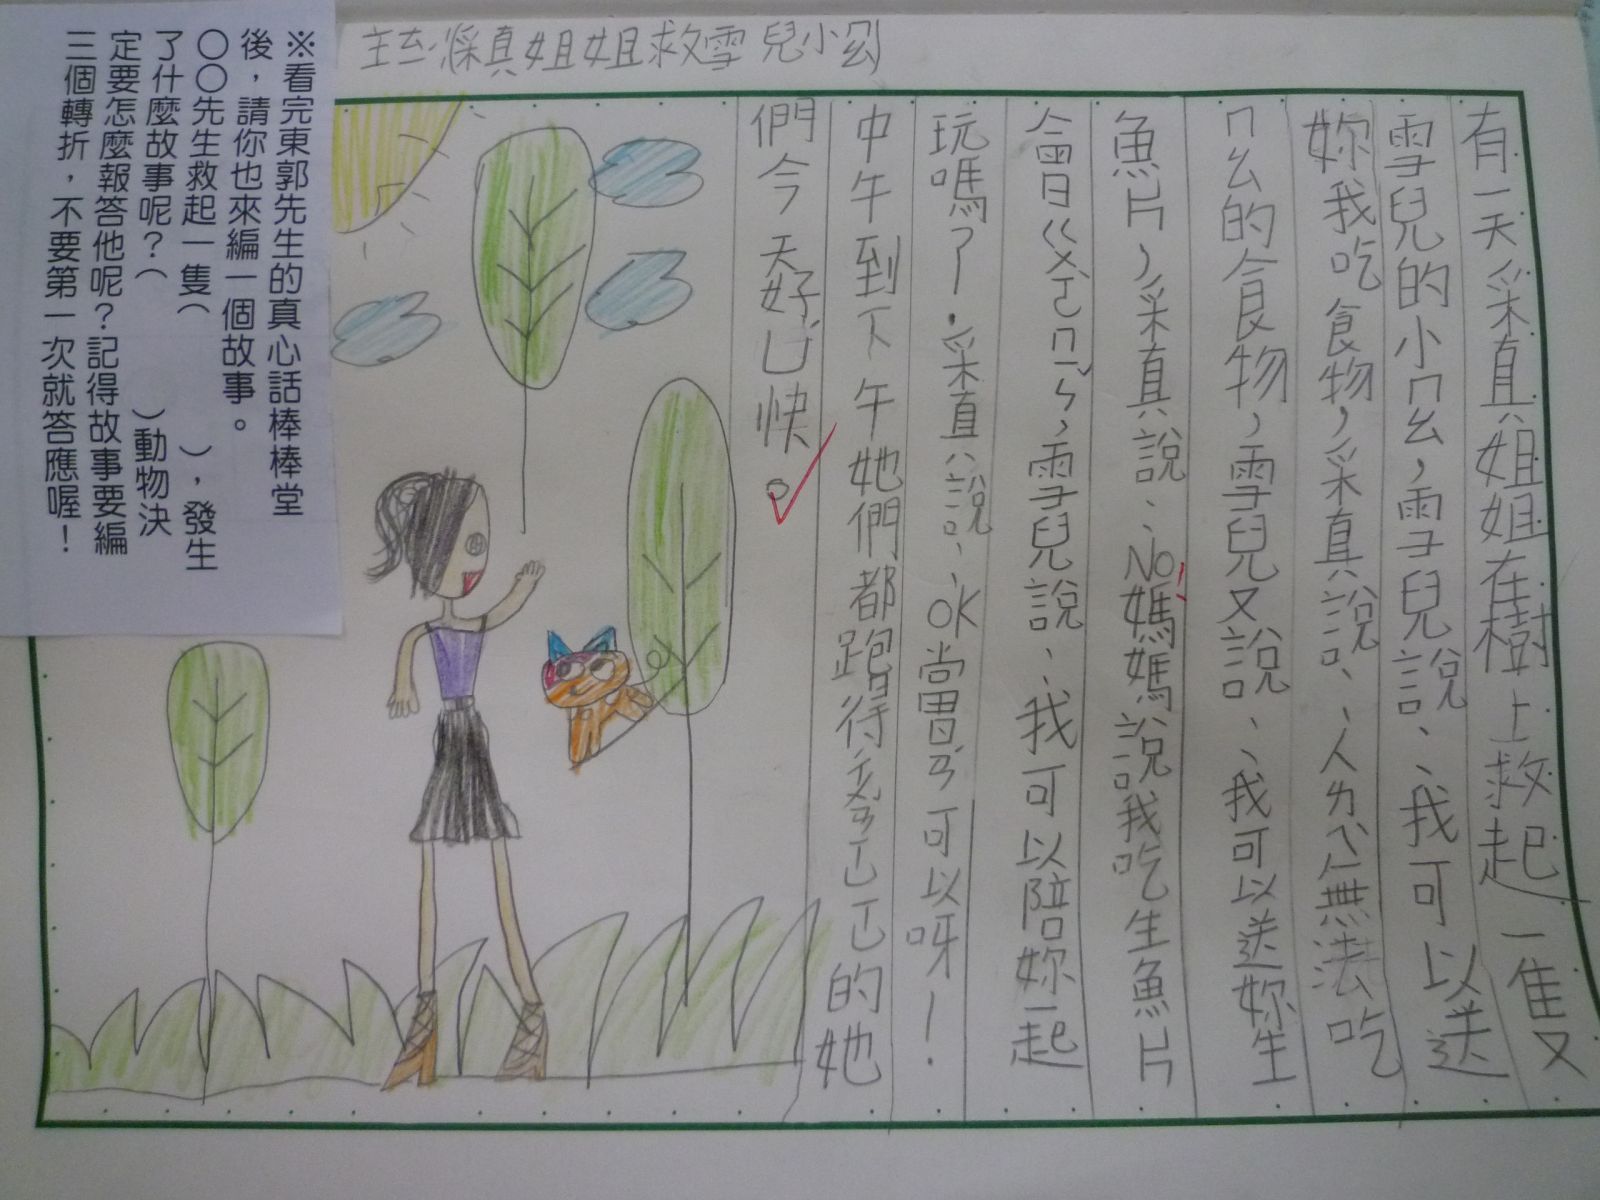 ※看完東郭先生的真心話棒棒堂
後，請你也來編一個故事。
○○先生救起一隻（　　　），發生
了什麼故事呢？（　　　）動物決
定要怎麼報答他呢？記得故事要編
三個轉折，不要第一次就答應喔！
采真姐姐救雪兒小
有一天采真姐姐在樹上救起一隻又
雪兒的小ㄇㄠ，雪兒說、、我可以送
妳我吃食物，采真說、、人ㄌㄟˋ無法吃
ㄇㄠ的食物，雪兒又說、、我可以送妳生
魚片，采真說、、No!媽媽說我吃生魚片
會ㄍㄨㄛˋㄇㄣˇ，雪兒說、、我可以陪妳一起
玩嗎？采真說、、OK當ㄖㄢˊ可以呀！
中午到下午她們都跑得 的她
們今天好ㄩˊ快。